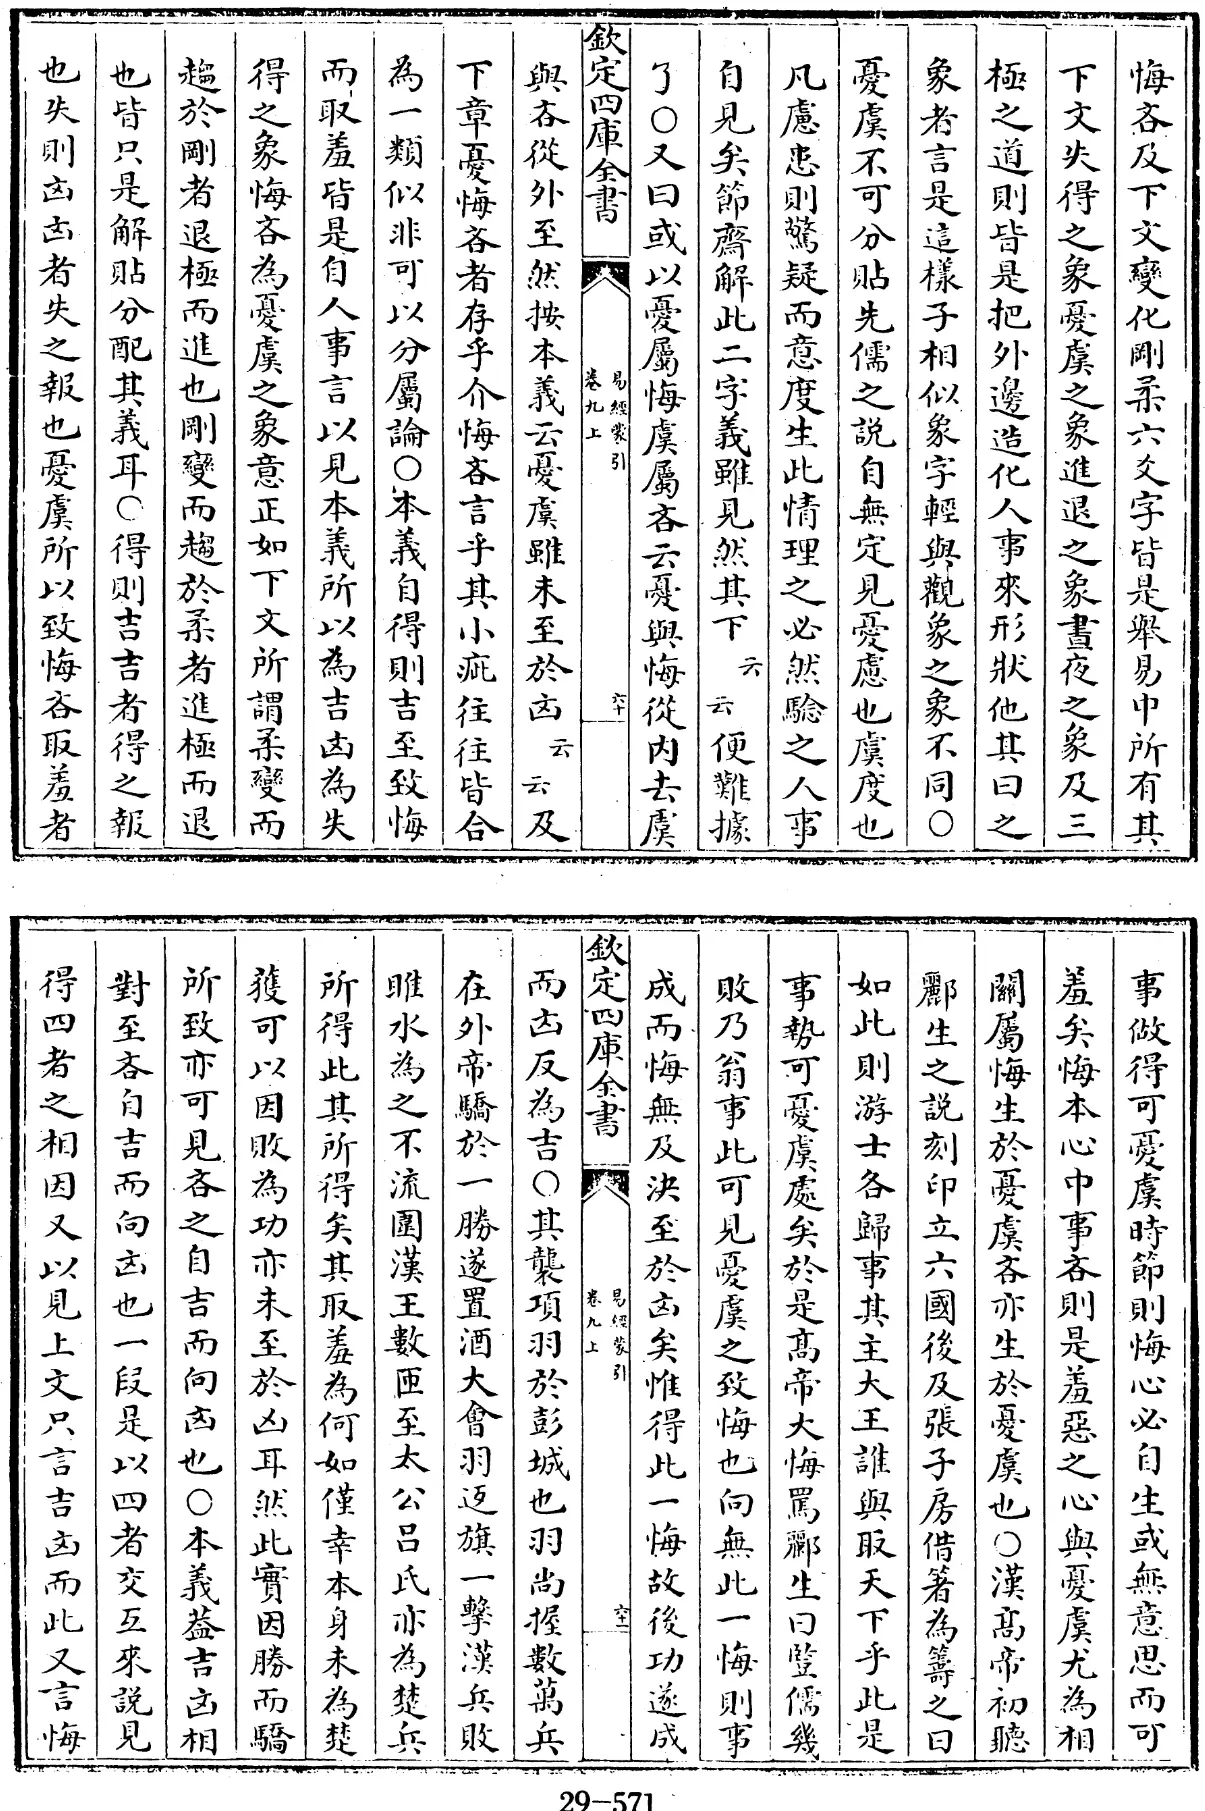 悔吝及下文變化剛柔六爻字皆是舉易中所有其
下文失得之象憂虞之象進退之象晝夜之象及三
極之道則皆是把外邊造化人事來形狀他其曰之
象者言是這樣子相似象字輕與觀象之象不同○
憂虞不可分貼先儒之說自無定見憂慮也虞度也
凡慮患則驚疑而意度生此情理之必然驗之人事
自見矣節齋解此二字義雖見然其下云云便難據
了○又曰或以憂屬悔虞屬吝云憂與悔從内去虞
欽定四庫全書
易經蒙引
卷九上
六十
與吝從外至然按本義云憂虞雖未至於凶云云及
下章憂悔吝者存乎介悔吝言乎其小疵往往皆合
為一類似非可以分屬論○本義自得則吉至致悔
而取羞皆是自人事言以見本義所以為吉凶為失
得之象悔吝為憂虞之象意正如下文所謂柔變而
趨於剛者退極而進也剛變而趨於柔者進極而退
也皆只是解貼分配其義耳○得則吉吉者得之報
也失則凶凶者失之報也憂虞所以致悔吝取羞者
事做得可憂虞時節則悔心必自生或無意思而可
羞矣悔本心中事吝則是羞惡之心與憂虞尤為相
關屬悔生於憂虞吝亦生於憂虞也○漢髙帝初聽
酈生之說刻印立六國後及張子房借箸為籌之曰
如此則游士各歸事其主大王誰與取天下乎此是
事勢可憂虞處矣於是髙帝大悔罵酈生曰豎儒幾
敗乃翁事此可見憂虞之致悔也向無此一悔則事
成而悔無及決至於凶矣惟得此一悔故後功遂成
欽定四庫全書
易經蒙引
卷九上
六十一
而凶反為吉○其襲項羽於彭城也羽尚握數萬兵
在外帝驕於一勝遂置酒大會羽返旗一擊漢兵敗
睢水為之不流圍漢王數匝至太公吕氏亦為楚兵
所得此其所得矣其取羞為何如僅幸本身未為楚
獲可以因敗為功亦未至於凶耳然此實因勝而驕
所致亦可見吝之自吉而向凶也○本義葢吉凶相
對至吝自吉而向凶也一段是以四者交互來説見
得四者之相因又以見上文只言吉凶而此又言悔
29-571